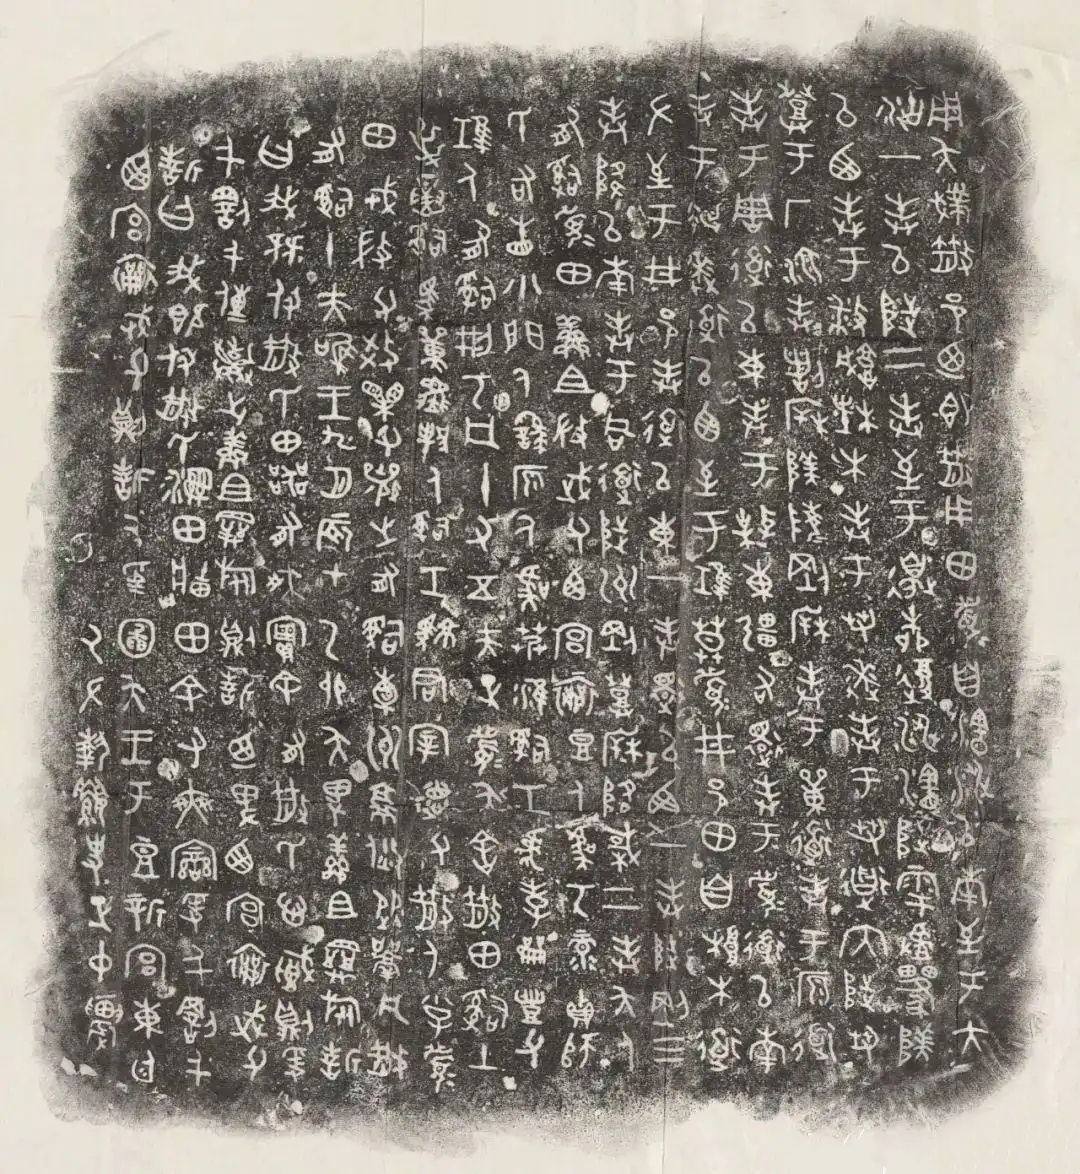 用夨𢦏散邑乃即散用田眉自瀗涉以南至于大
沽一封以陟二封至于邊柳復涉瀗陟雩𢊁𨤲𨻰
以西封于播城楮木封于芻逨封于芻道内陟芻
登于厂湶封諸㭉𨻰陵剛㭉封于單道封于原道
封于周道以東封于棹東疆右還封于眉道以南
封于㺇逨道以西至于堆莫眉井邑田自桹木道
左至于井邑封道以東一封還以西一封陟剛三
封降以南封于同道陟州剛登㭉降棫二封夨人
有司眉田鮮且微武父西宮襄豆人虞丂彔貞師
氏右眚小門人繇原人虞艿淮司工虎孝龠豐父
堆人有司刑丂凡十又五夫正眉夨舍散田司土
屰寅司馬單堒䢼人司工駷君宰德父散人小子眉
田戎微父效櫐父襄之有司橐州就焂從𩰬凡散
有司十夫唯王九月辰才乙卯夨卑鮮且𢍰旅誓
曰我既付散氏田器有爽實余有散氏心賊則爰
千罰千傳棄之鮮且𢍰旅則誓迺卑西宮襄武父
誓曰我既付散氏濕田牆田余有爽變爰千罰千
西宮襄武父則誓厥受圖夨王于豆新宮東廷
厥左執要史正中農